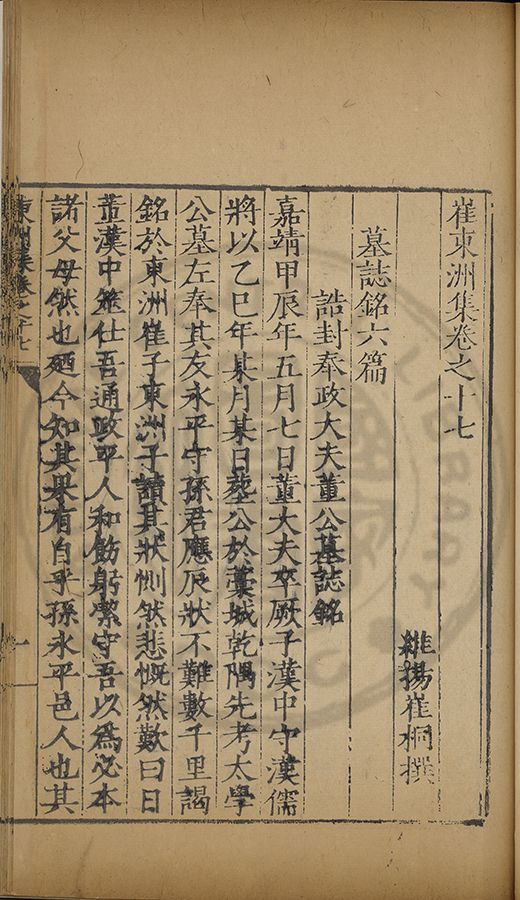 崔東洲集卷之十七
維揚崔桐撰
墓誌銘六篇
誥封奉政大夫董公墓誌銘
嘉靖甲辰年五月七日董大夫卒厥子漢中守漢儒
將以乙巳年某月某日塟公於藁城乾隅先考太學
公墓左奉其友永平守孫君應辰狀不難數千里謁
銘於東洲崔子東洲子讀其狀惻然悲慨然歎曰日
董漢中筮仕吾通政平人和飭躬潔守吾以爲必本
諸父母然也廼今知其果有自乎孫永平邑人也其
東洲集卷之十七
一